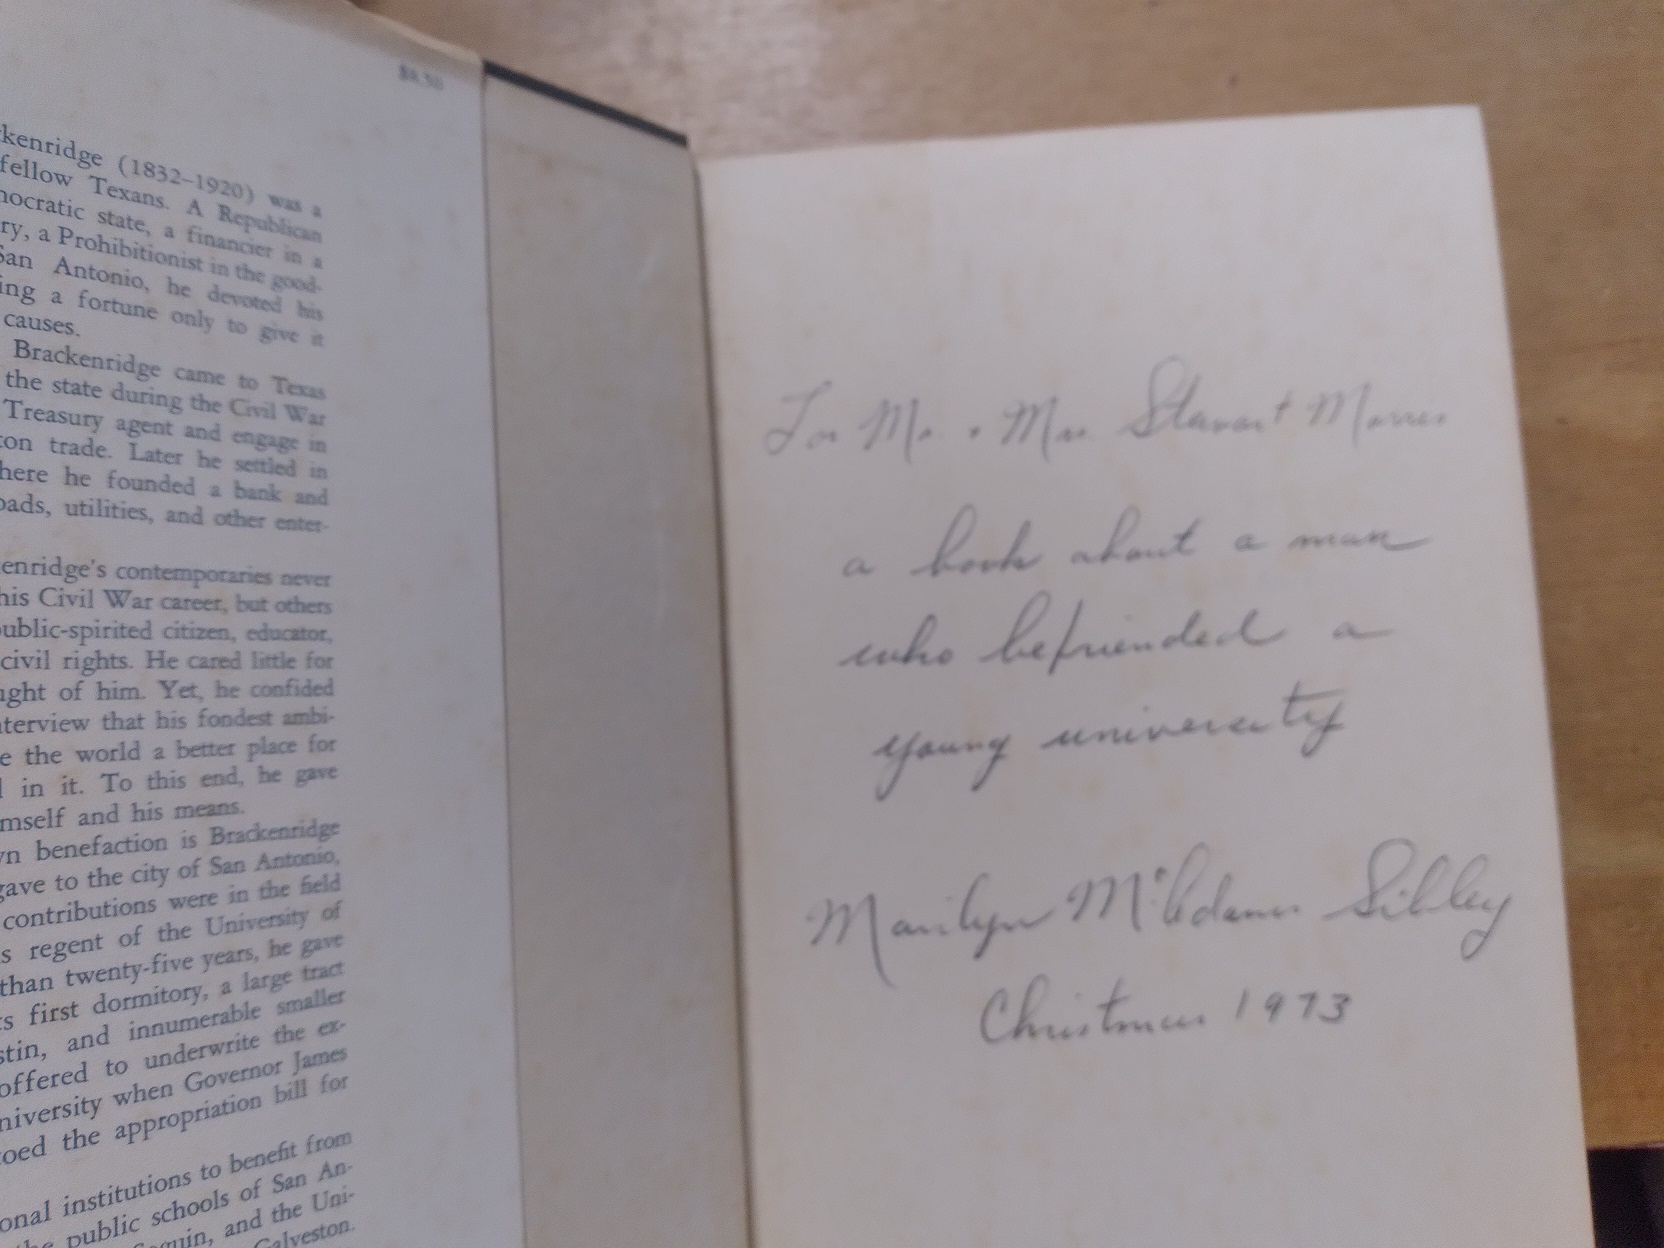 $8.50
kenridge (1832–1920) was a
fellow Texans. A Republican
nocratic state, a financier in a
ry, a Prohibitionist in the good-
San Antonio, he devoted his
ing a fortune only to give it
causes.
Brackenridge came to Texas
the state during the Civil War
Treasury agent and engage in
ton trade. Later he settled in
here he founded a bank and
oads, utilities, and other enter-
enridge's contemporaries never
his Civil War career, but others
ublic-spirited citizen, educator,
civil rights. He cared little for
ught of him. Yet, he confided
nterview that his fondest ambi-
e the world a better place for
l in it. To this end, he gave
mself and his means.
vn benefaction is Brackenridge
gave to the city of San Antonio,
contributions were in the field
s regent of the University of
than twenty-five years, he gave
ts first dormitory, a large tract
stin, and innumerable smaller
offered to underwrite the ex-
niversity when Governor James
toed the appropriation bill for
onal institutions to benefit from
the public schools of San An-
eguin, and the Uni-
Galveston.
For Mr. + Mrs. Stewart Morris
a book about a man
who befriended a
young university
Marilyn McAdams Sibley
Christmas 1973